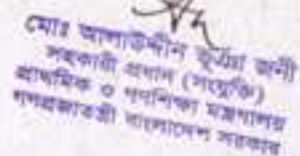 মোঃ আলাউদ্দীন ভূঁঞা জনী
সহকারী প্রধান (সংযুক্তি)
প্রাথমিক ও গণশিক্ষা মন্ত্রণালয়
গণপ্রজাতন্ত্রী বাংলাদেশ সরকার